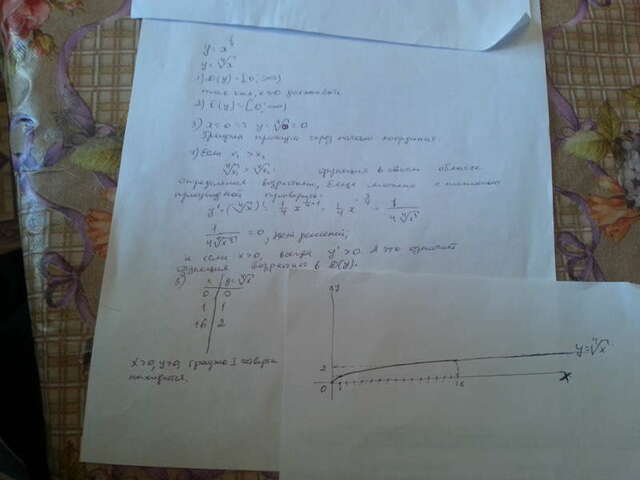 y = x^{1/4}
y = ⁴√x
1) D(y) = [0; ∞)
2) E(y) = [0; ∞)
3) x = 0 => y = ⁴√0 = 0
График проходит через начало координат
4) Если x₁ > x₂
⁴√x₁ > ⁴√x₂ функция в своей области
определения возрастает, можно с помощью
производной проверить.
y' = (⁴√x)' = 1/4 x^{1/4-1} = 1/4 x^{-3/4} = 1/(4 ⁴√x³)
1/(4 ⁴√x³) = 0, нет решений,
и если x > 0, всегда y' > 0. А это означает
функция возрастает в D(y).
5) x | y = ⁴√x
0 | 0
1 | 1
16 | 2
x > 0, y > 0, график I четверти
находится.
y
y = ⁴√x
2
0 1 16 x